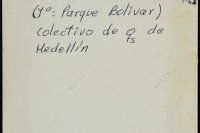 (1º: Parque Bolívar)
Colectivo de
de
Medellín